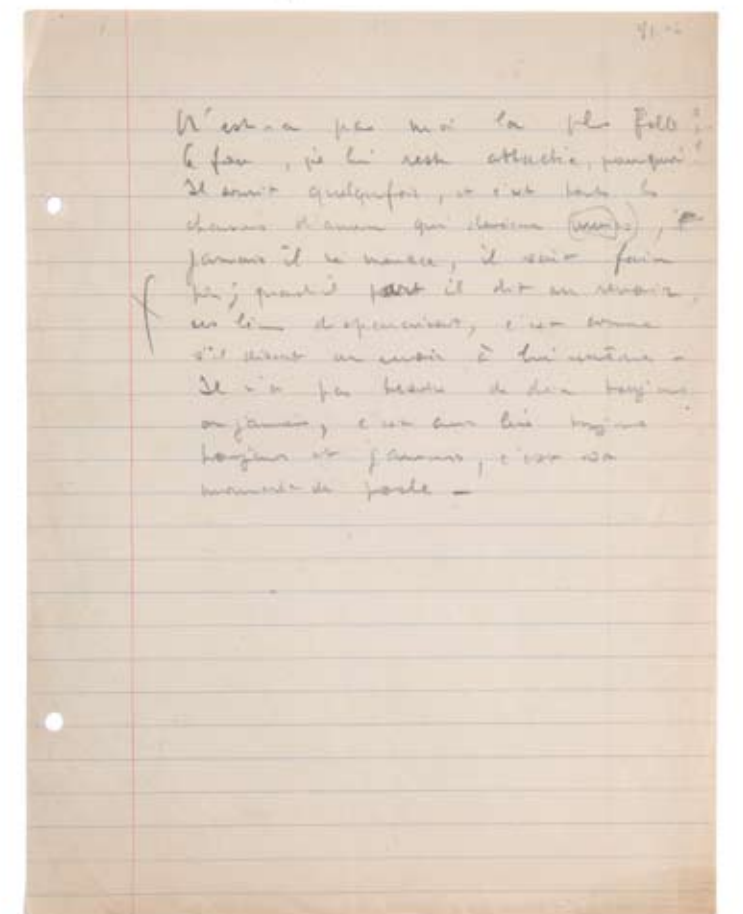 N'est-ce pas moi la plus folle ?
Le fou, je lui reste attachée, pourquoi ?
Il sourit quelquefois, et c'est toute la
d'amour qui
jamais il ne menace, il sait faire
pis ; quand il part il dit au revoir,
disparaissent, c'est comme
s'il disait au revoir à lui-même –
Il n'a pas besoin de dire toujours
ou jamais, c'est avec lui toujours
toujours et jamais, c'est son
de poche –